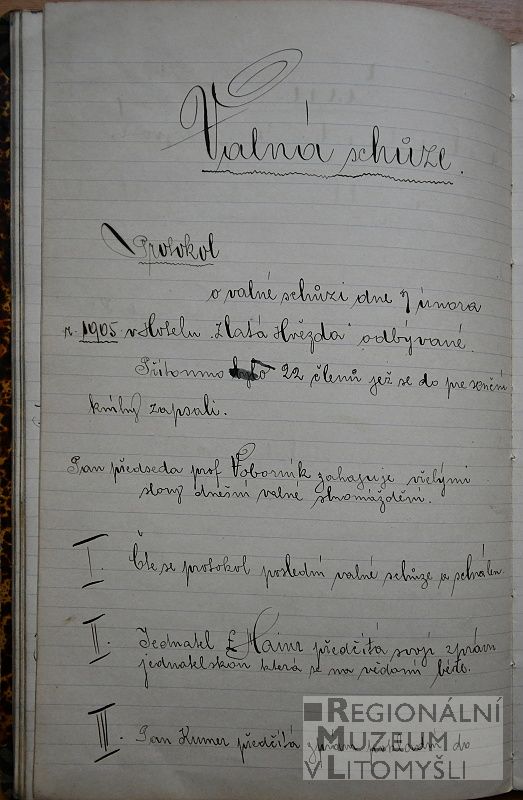 Valná schůze.
Protokol
o valné schůzi dne 7 února
r. 1905 v Hotelu „Zlatá Hvězda" odbývané.
Přítomno bylo 22 členů jež se do presenční
knihy zapsali.
Pan předseda prof Voborník zahajuje vřelými
slovy dnešní valné shromáždění.
I. Čte se protokol poslední valné schůze a schválen
II. Jednatel E Hainz předčítá svoji zprávu
jednatelskou která se na vědomí béře.
III. Pan Kumer předčítá zprávu pokladní do
REGIONÁLNÍ
MUZEUM
V LITOMYŠLI